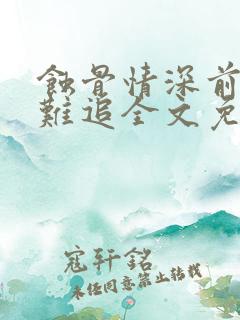 蝕骨情深前
難追全文免
寇轩銘
未经同意禁止转载